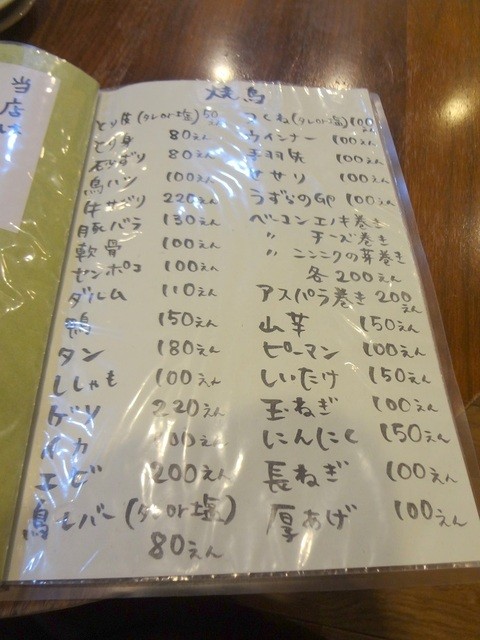 当店は
焼鳥
とり皮(タレor塩)50えん
とり身 80えん
石ずり 80えん
鳥ハツ 100えん
牛サガリ 220えん
豚バラ 130えん
軟骨 100えん
センポコ 100えん
ダルム 110えん
鴨 150えん
タン 180えん
ししゃも 100えん
ゲソ 220えん
イカ 00えん
エビ 200えん
鳥レバー(タレor塩)
80えん
つくね(タレor塩)100えん
ウインナー 100えん
手羽先 100えん
せせり 100えん
うずらの卵 100えん
ベーコンエノキ巻き
〃 チーズ巻き
〃 ニンニクの芽巻き
各200えん
アスパラ巻き 200えん
山芋 150えん
ピーマン 100えん
しいたけ 150えん
玉ねぎ 100えん
にんにく 150えん
長ねぎ 100えん
厚あげ 100えん